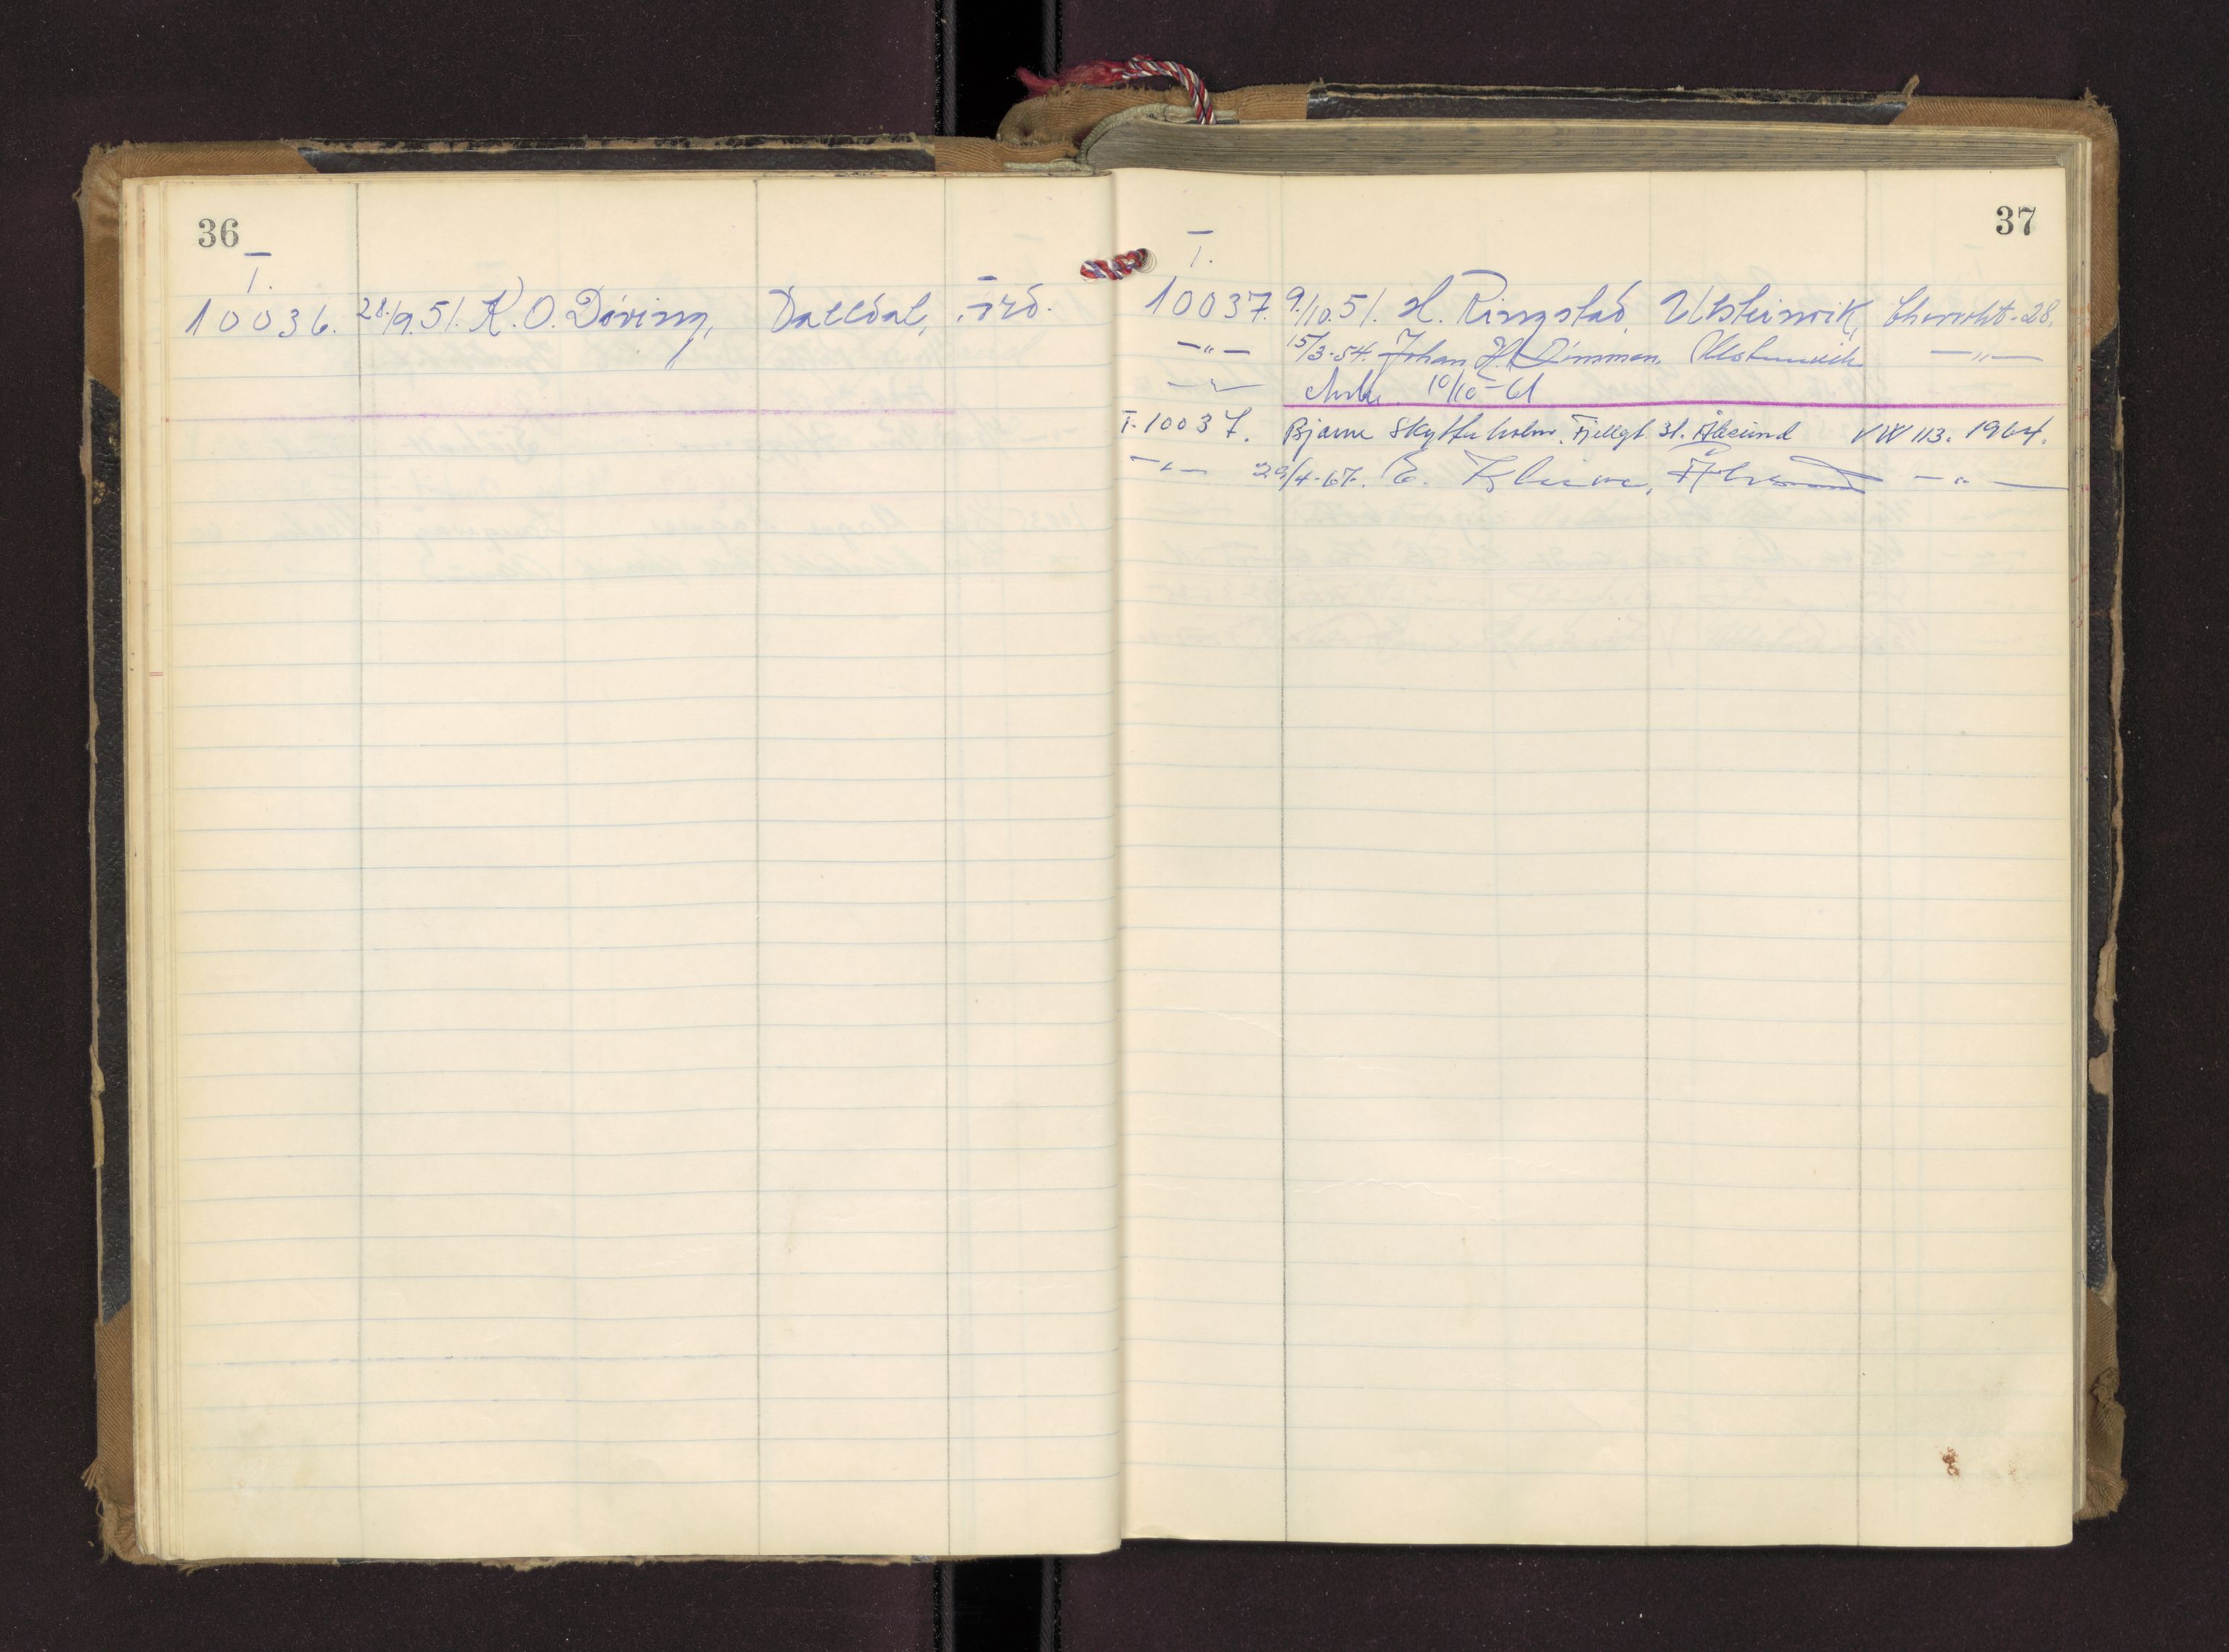 36
T.
10036. 28/9.51. K. O. Døving, Dalldal, Ford.
37
T.
10037. 9/10.51. H. Ringstad, Ulsteinvik, Chevrolet-28.
—"— 15/3-54. Johan H. Dimmen, Ulsteinvik —"—
—"— 10/10-61
T-10037. Bjarne Skytterholm, Fjellgt. 31. Ålesund VW 113. 1964.
—"— 29/4-67. E. Kleive, Ålesund —"—